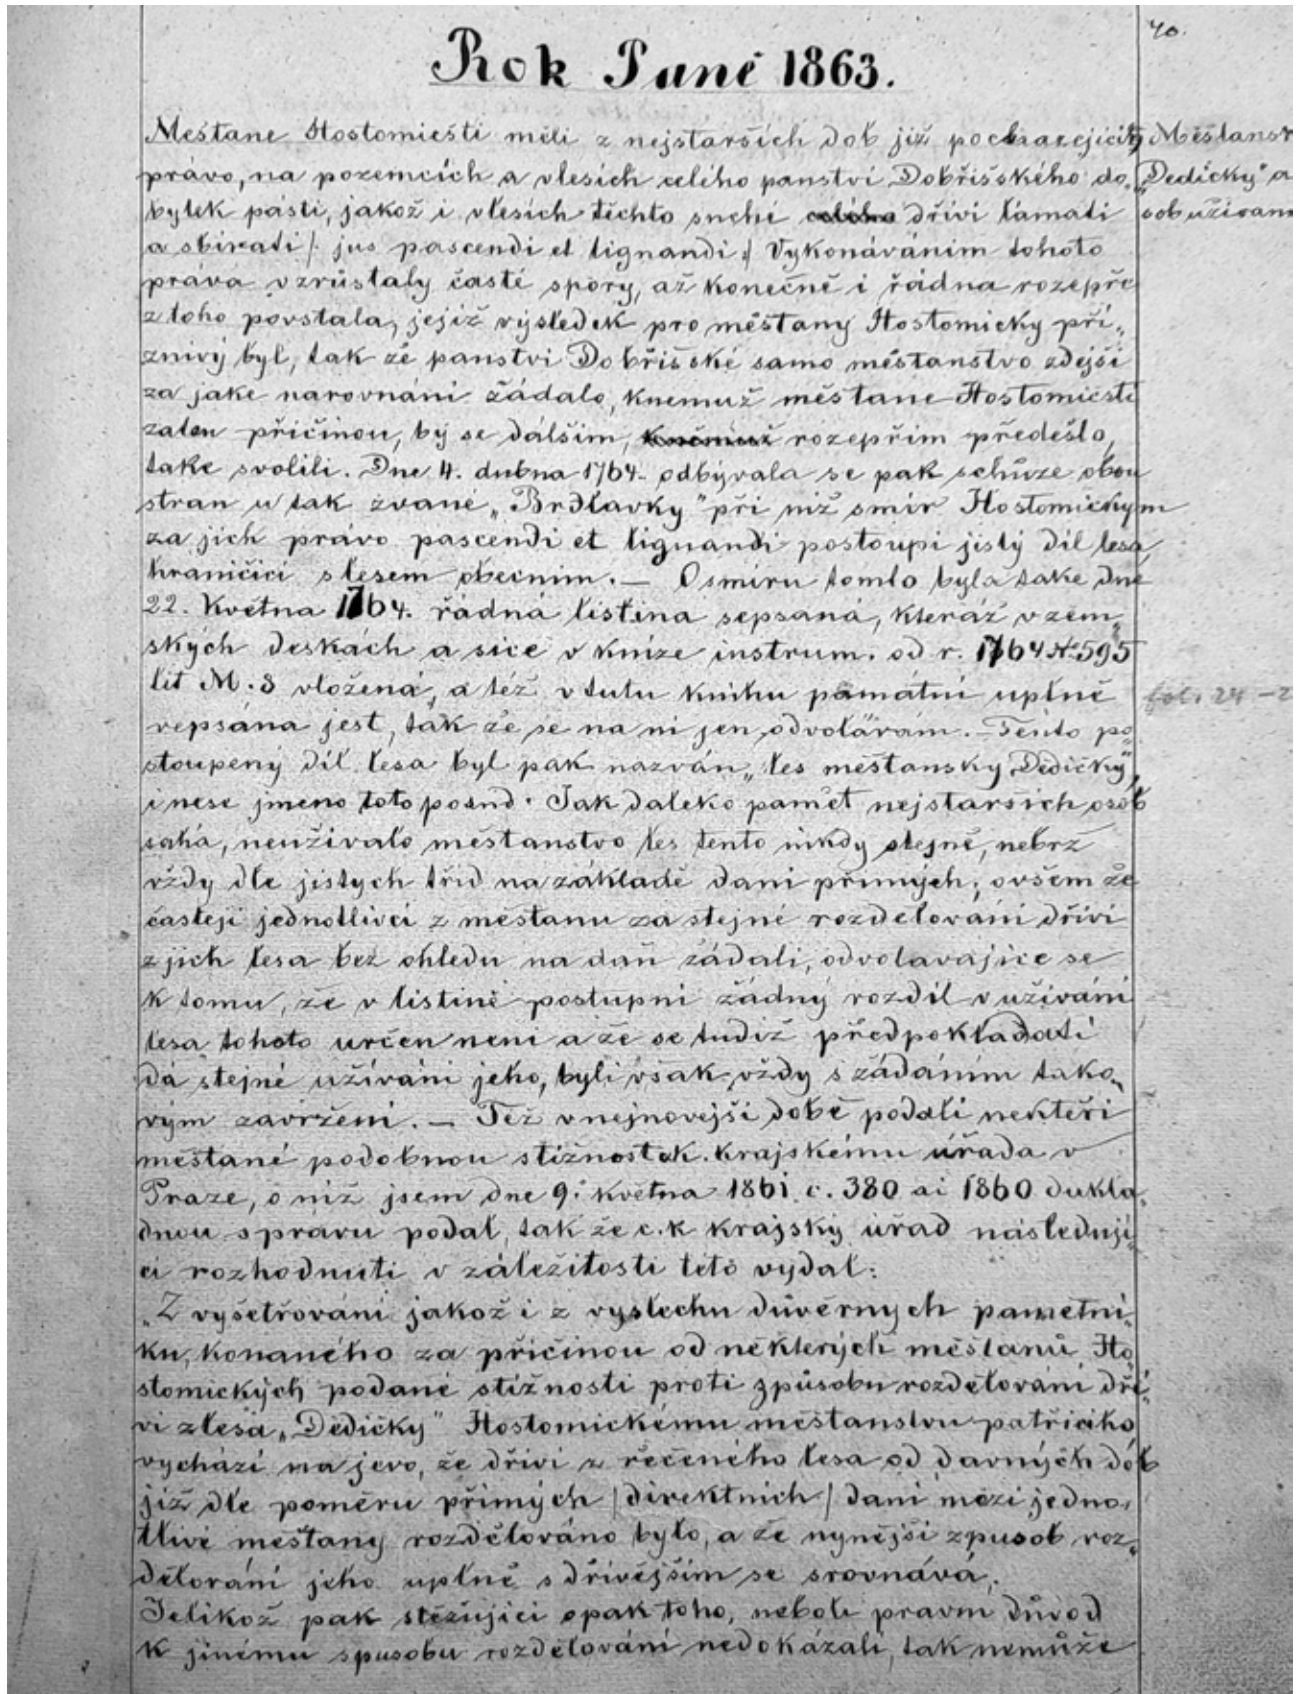 40.
Rok Páně 1863.
Měštane Hostomičti měli z nejstarších dob již pocházející Měšťansk
právo, na pozemcích a vlesích celého panství Dobříšského do„ „Dedičky“ a
bytek pásti, jakož i vlesích těchto suché dříví lámati sob užívání
a sbírati /: jus pascendi et lignandi :/ Vykonáváním tohoto
práva vzrůstaly časté spory, až konečně i řádna rozepře
z toho povstala, jejíž výsledek pro měštany Hostomicky pří„
znivý byl, tak že panství Dobříšské samo měštanstvo zdejší
za jake narovnání žádalo, knemuž měštane Hostomičti
zatou příčinou, by se dálším, rozepřím předešlo,
take svolili. Dne 4. dubna 1764. odbývala se pak schůze obou
stran u tak zvané „Brdlavky“ při níž smír Hostomickým
za jich právo pascendi et lignandi postoupí jistý díl lesa,
hraničící slesem obecním. — O smíru tomto byla take dne
22. Května 1764. řádná listina sepsaná, kteráž vzem„
ských deskách a sice v knize instrum. od r. 1764 № 595
lit M. 3 vložená, a též vtutu knihu pamatní uplně fol. 24 - 2
vepsána jest, tak že se na ni jen odvolávám. — Tento po„
stoupený díl lesa byl pak nazván „les měštansky Dědičky“
i nese jmeno toto posud. Jak daleko pamět nejstarších osob
sahá, neužívalo měštanstvo les tento nikdy stejně, nebrž
vždy dle jistych tříd na základě daní přímých, ovšem že
častejí jednotlivcí z měštanu za stejné rozdelování dříví
z jich lesa bez ohledu na daň žádali, odvolavajíce se
k tomu, že v listině postupní žádný rozdíl v užívání
lesa tohoto určen není a že se tudíž předpokladati
dá stejné užívání jeho, byli však vždy s žádáním tako„
vým zavržení. — Též vnejnovejší době podali nekteří
meštané podobnou stížnost k. krajskému úřada v
Praze, o níž jsem dne 9. května 1861 c. 380 ai 1860 dukla„
dnou spravu podal, tak že c. k krajský úřad následují„
cí rozhodnutí v záležitosti této vydal:
„Z vyšetřování jakož i z vyslechu důvěrnych pametní„
ku, konaného za příčinou od některých měštanů Ho„
stomických podané stížnosti proti způsobu rozdělování dří„
ví zlesa „Dědičky“ Hostomickému měštanstvu patřícího
vychází na jevo, že dříví z řečeného lesa od davných dob
již dle poměru přímých / direktních / daní mezi jedno„
tlivé měštany rozdělováno bylo, a že nynější zpusob roz„
dělování jeho uplně s dřívějším se srovnává.
Jelikož pak stěžující opak toho, neboli pravní důvod
k jinému spusobu rozdělování nedokázali, tak nemůže